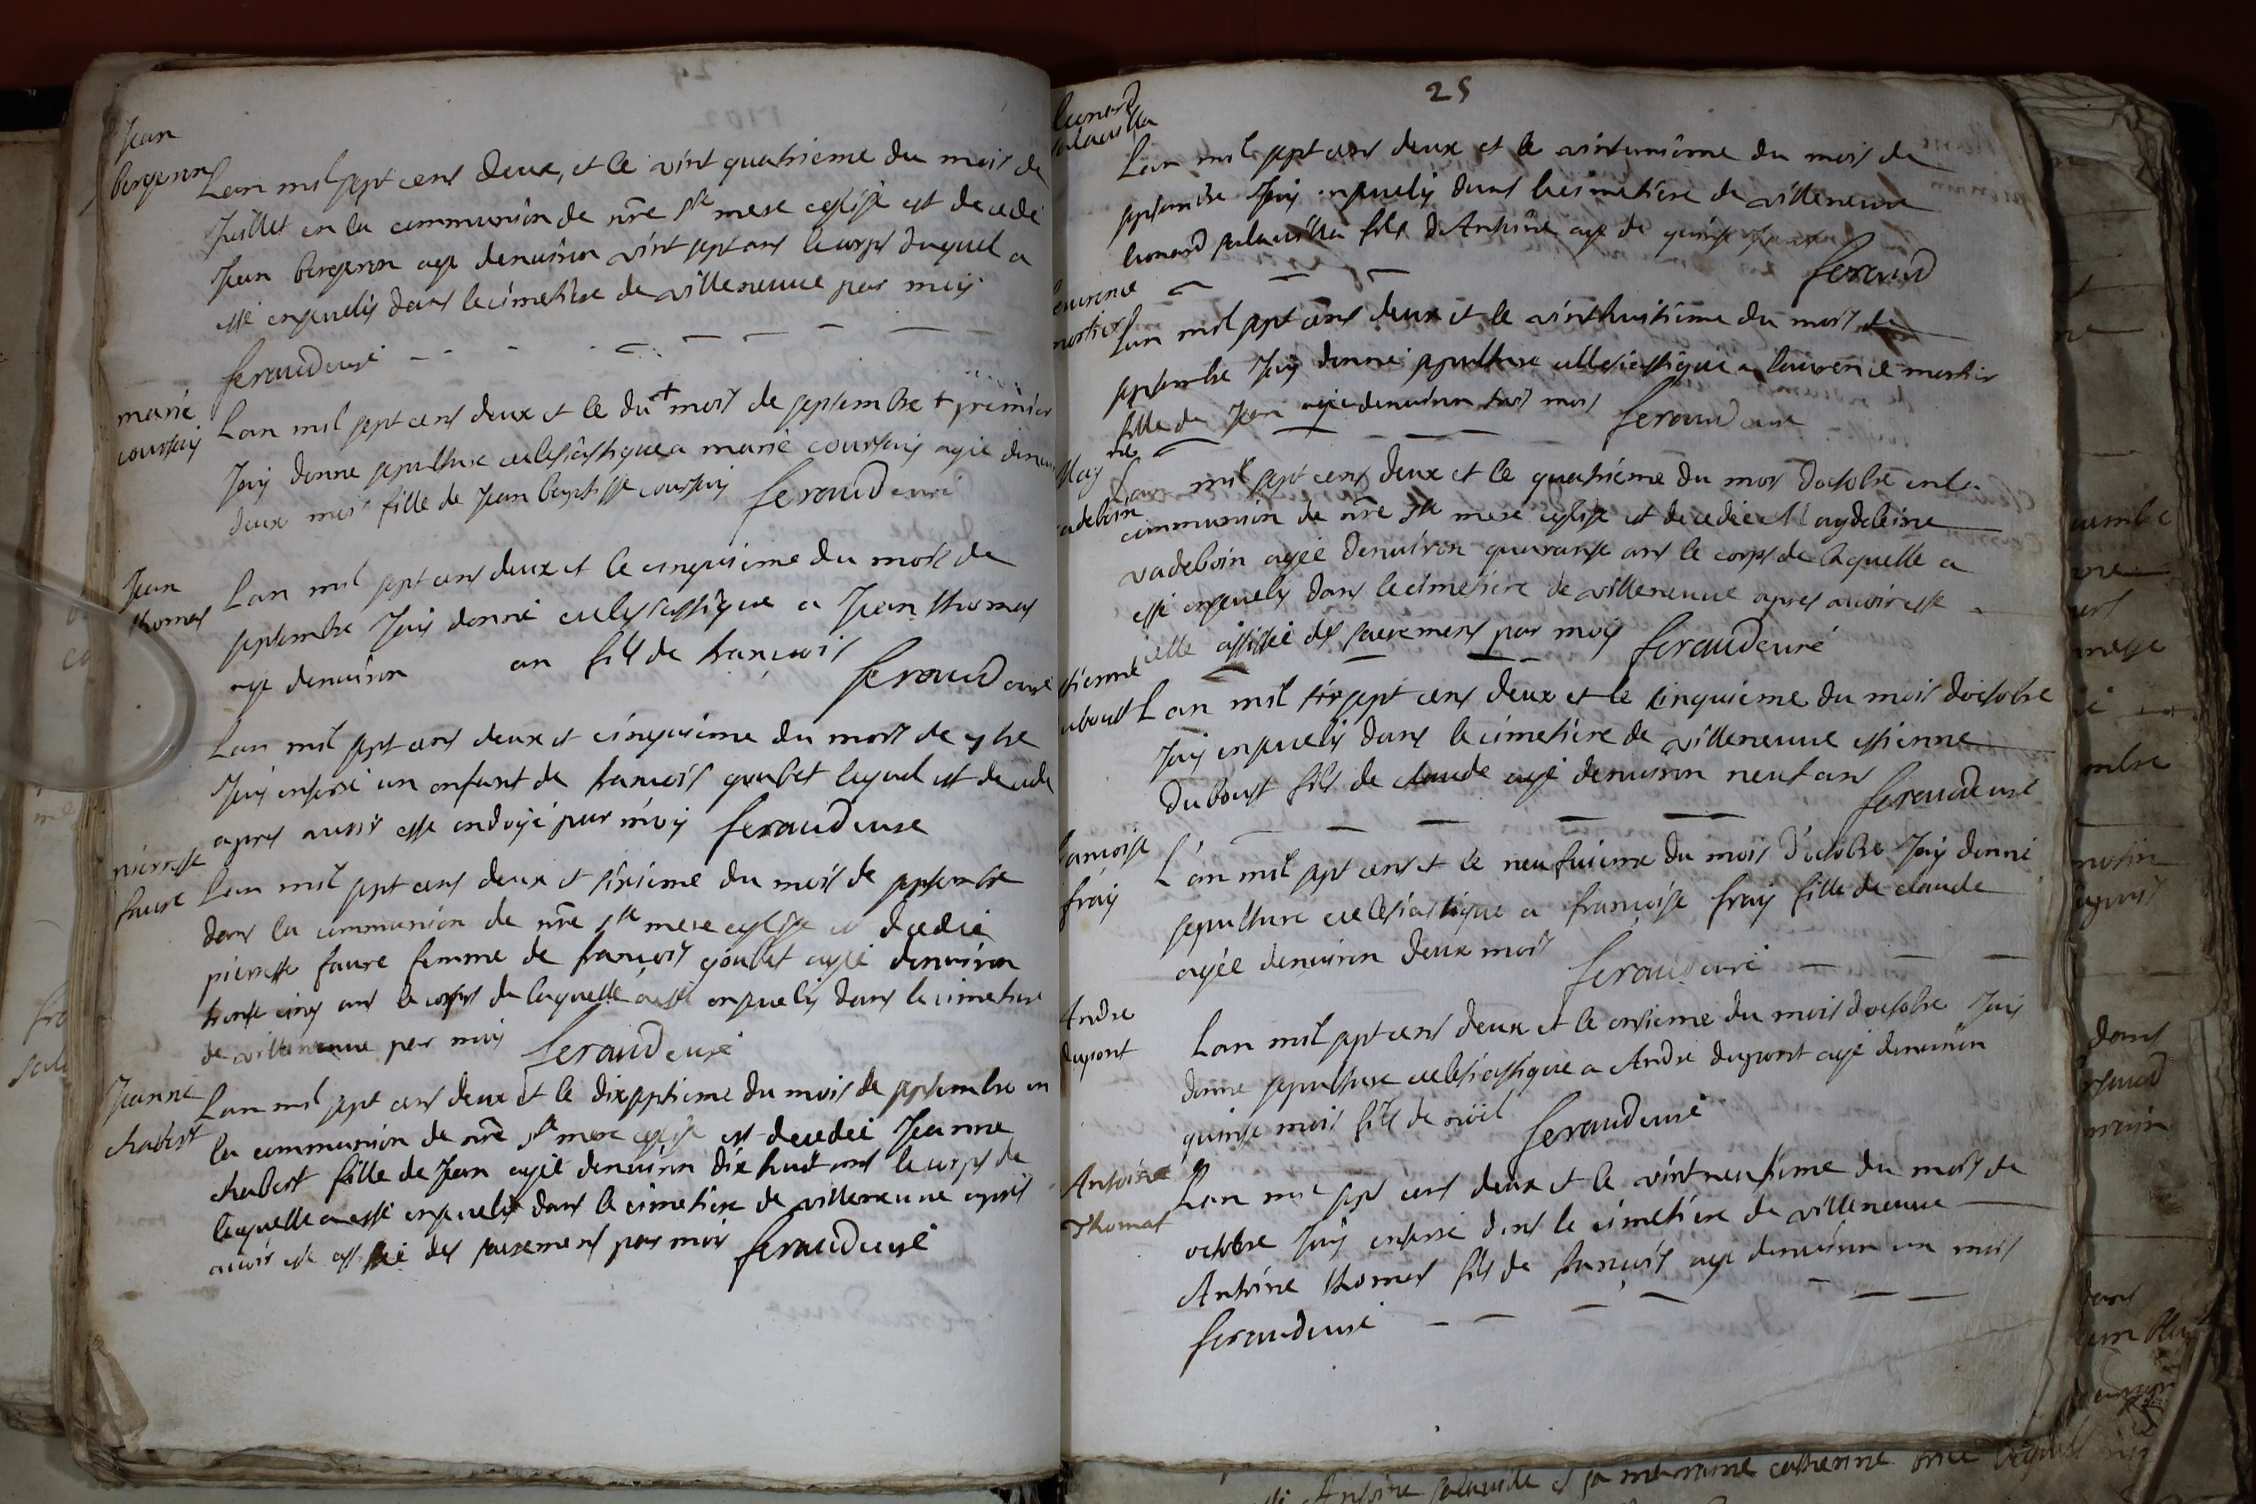 Jean
bergeron
Lan mil sept cens deux, et le vint quatrieme du mois de
Juillet en la communion de nre ste mere eglise est decedé
Jean bergeron age denuiron vint sept ans le corps duquel a
esté enseuelis dans le cimetiere de villeneuue par moy
feraud curé
marie
coursay
Lan mil sept cens deux et le du + mois de septembre + premier
Jay donne sepulture eclesiastique a marie coursay agée denuiron
deux mois fille de Jean baptiste coursay feraud curé
Jean
thomas
Lan mil sept cens deux et le cinquieme du mois de
septembre Jay donné eclesiastique a Jean thomas
age denuiron an fils de francois
feraud curé
Lan mil sept cens deux et cinquieme du mois de 7bre
Jay enterré un enfant de francois goubet lequel est decede
apres auoir esté endoyé par moy feraud curé
pierrette
faure
Lan mil sept cens deux et sixieme du mois de septembre
dans la communion de nre ste mere eglise est decedée
pierrette faure femme de francois goubet agée denuiron
trente cinq ans le corps de laquelle a esté enseuelis dans le cimetiere
de villeneuue par moy feraud curé
Jeanne
chabert
Lan mil sept cens deux et le dixseptieme du mois de septembre en
la communion de nre ste mere eglise est decedée Jeanne
chabert fille de Jean agée denuiron dix huit ans le corps de
laquelle a esté enseuelis dans le cimetiere de villeneuue apres
auoir esté assistée des sacremens par moy feraud curé
25
leonard
palauilla
Lan mil sept cens deux et le vintunième du mois de
septembre Jay enseuelis dans le cimetière de villeneuue
leonard palauilla fils d'Antoine age de quinse
feraud
laurence
mortier
Lan mil sept cens deux et le vinthuitieme du mois de
septembre Jay donné sepulture ecclesiastique a laurence mortier
fille de Jean agée denuiron huit mois feraud curé
May
vadeboin
Lan mil sept cens deux et le quatrieme du mois doctobre en la
communion de nre ste mere eglise est decedée Maydeleine
vadeboin agée denuiron quaranse ans le corps de laquelle a
esté enseuelis dans le cimetiere de villeneuue apres auoir esté
elle assistée des sacremens par moy feraud curé
estienne
duboust
Lan mil sept cens deux et le cinquieme du mois doctobre
Jay enseuelis dans le cimetiere de villeneuue estienne
Duboust fils de claude agé denuiron neuf ans feraud curé
francoise
fray
L'an mil sept cens et le neufuieme du mois d'octobre Jay donné
sepulture eclesiastique a françoise fray fille de claude
agée denuiron deux mois feraud curé
Andre
dupont
Lan mil sept cens deux et le onsieme du mois doctobre Jay
donne sepulture eclesiastique a Andre dupont agé denuiron
quinse mois fils de noël feraud curé
Antoine
Thomas
Lan mil sept cens deux et le vint neufieme du mois de
octobre Jay enterré dans le cimetière de villeneuue
Antoine thomas fils de françois age denuiron un mois
feraud curé